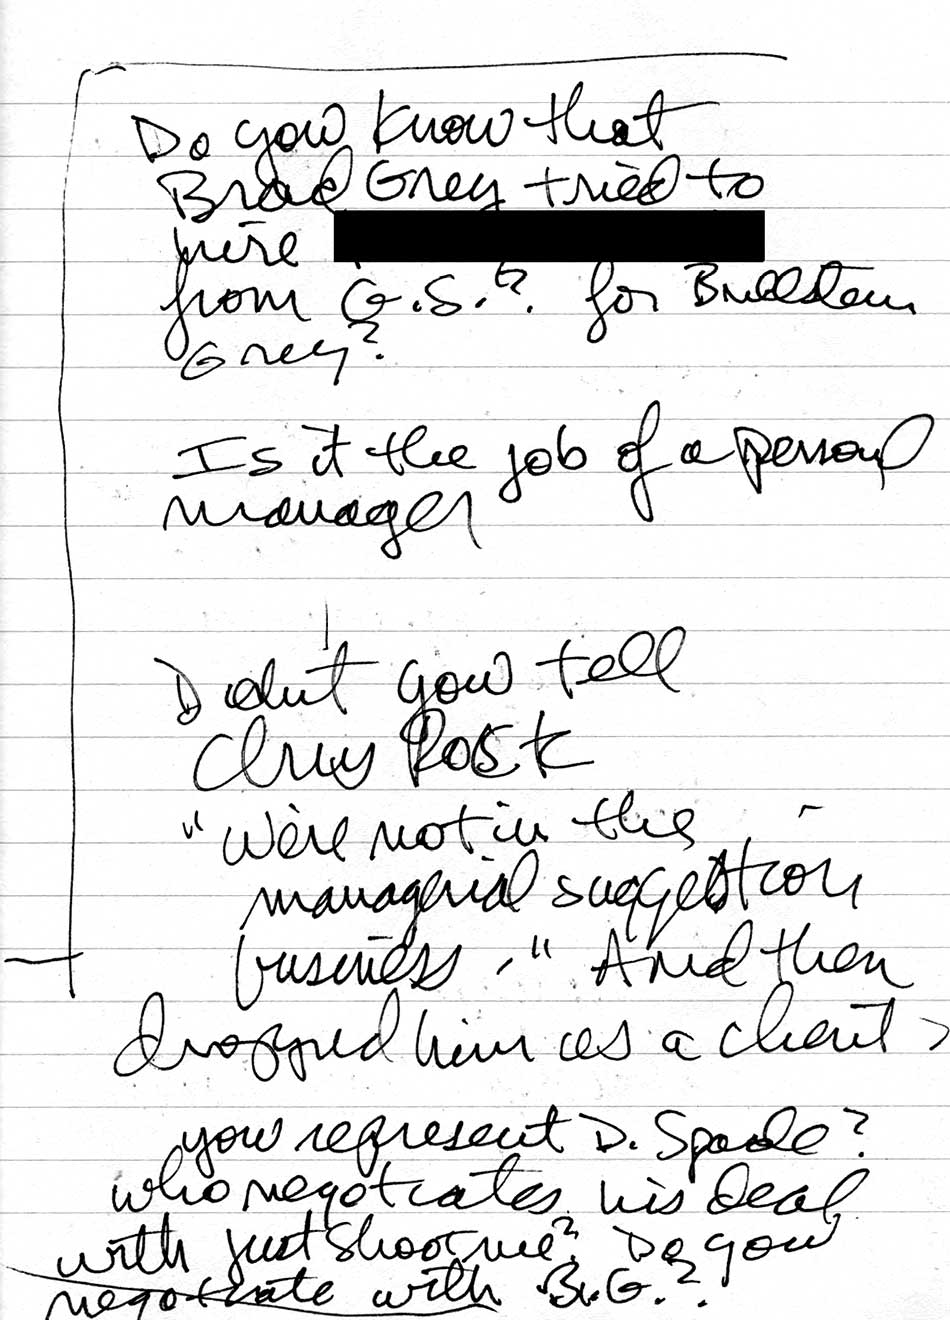 Do you know that
Brad Grey tried to
hire
from G.S.? for Brillstein
Grey?
Is it the job of a personal
manager
Didn't you tell
Chris Rock
"We're not in the
managerial suggestion
business." And then
dropped him as a client?
you represent D. Spade?
who negotiates his deal
with just shoot me? Do you
negotiate with B.G.?